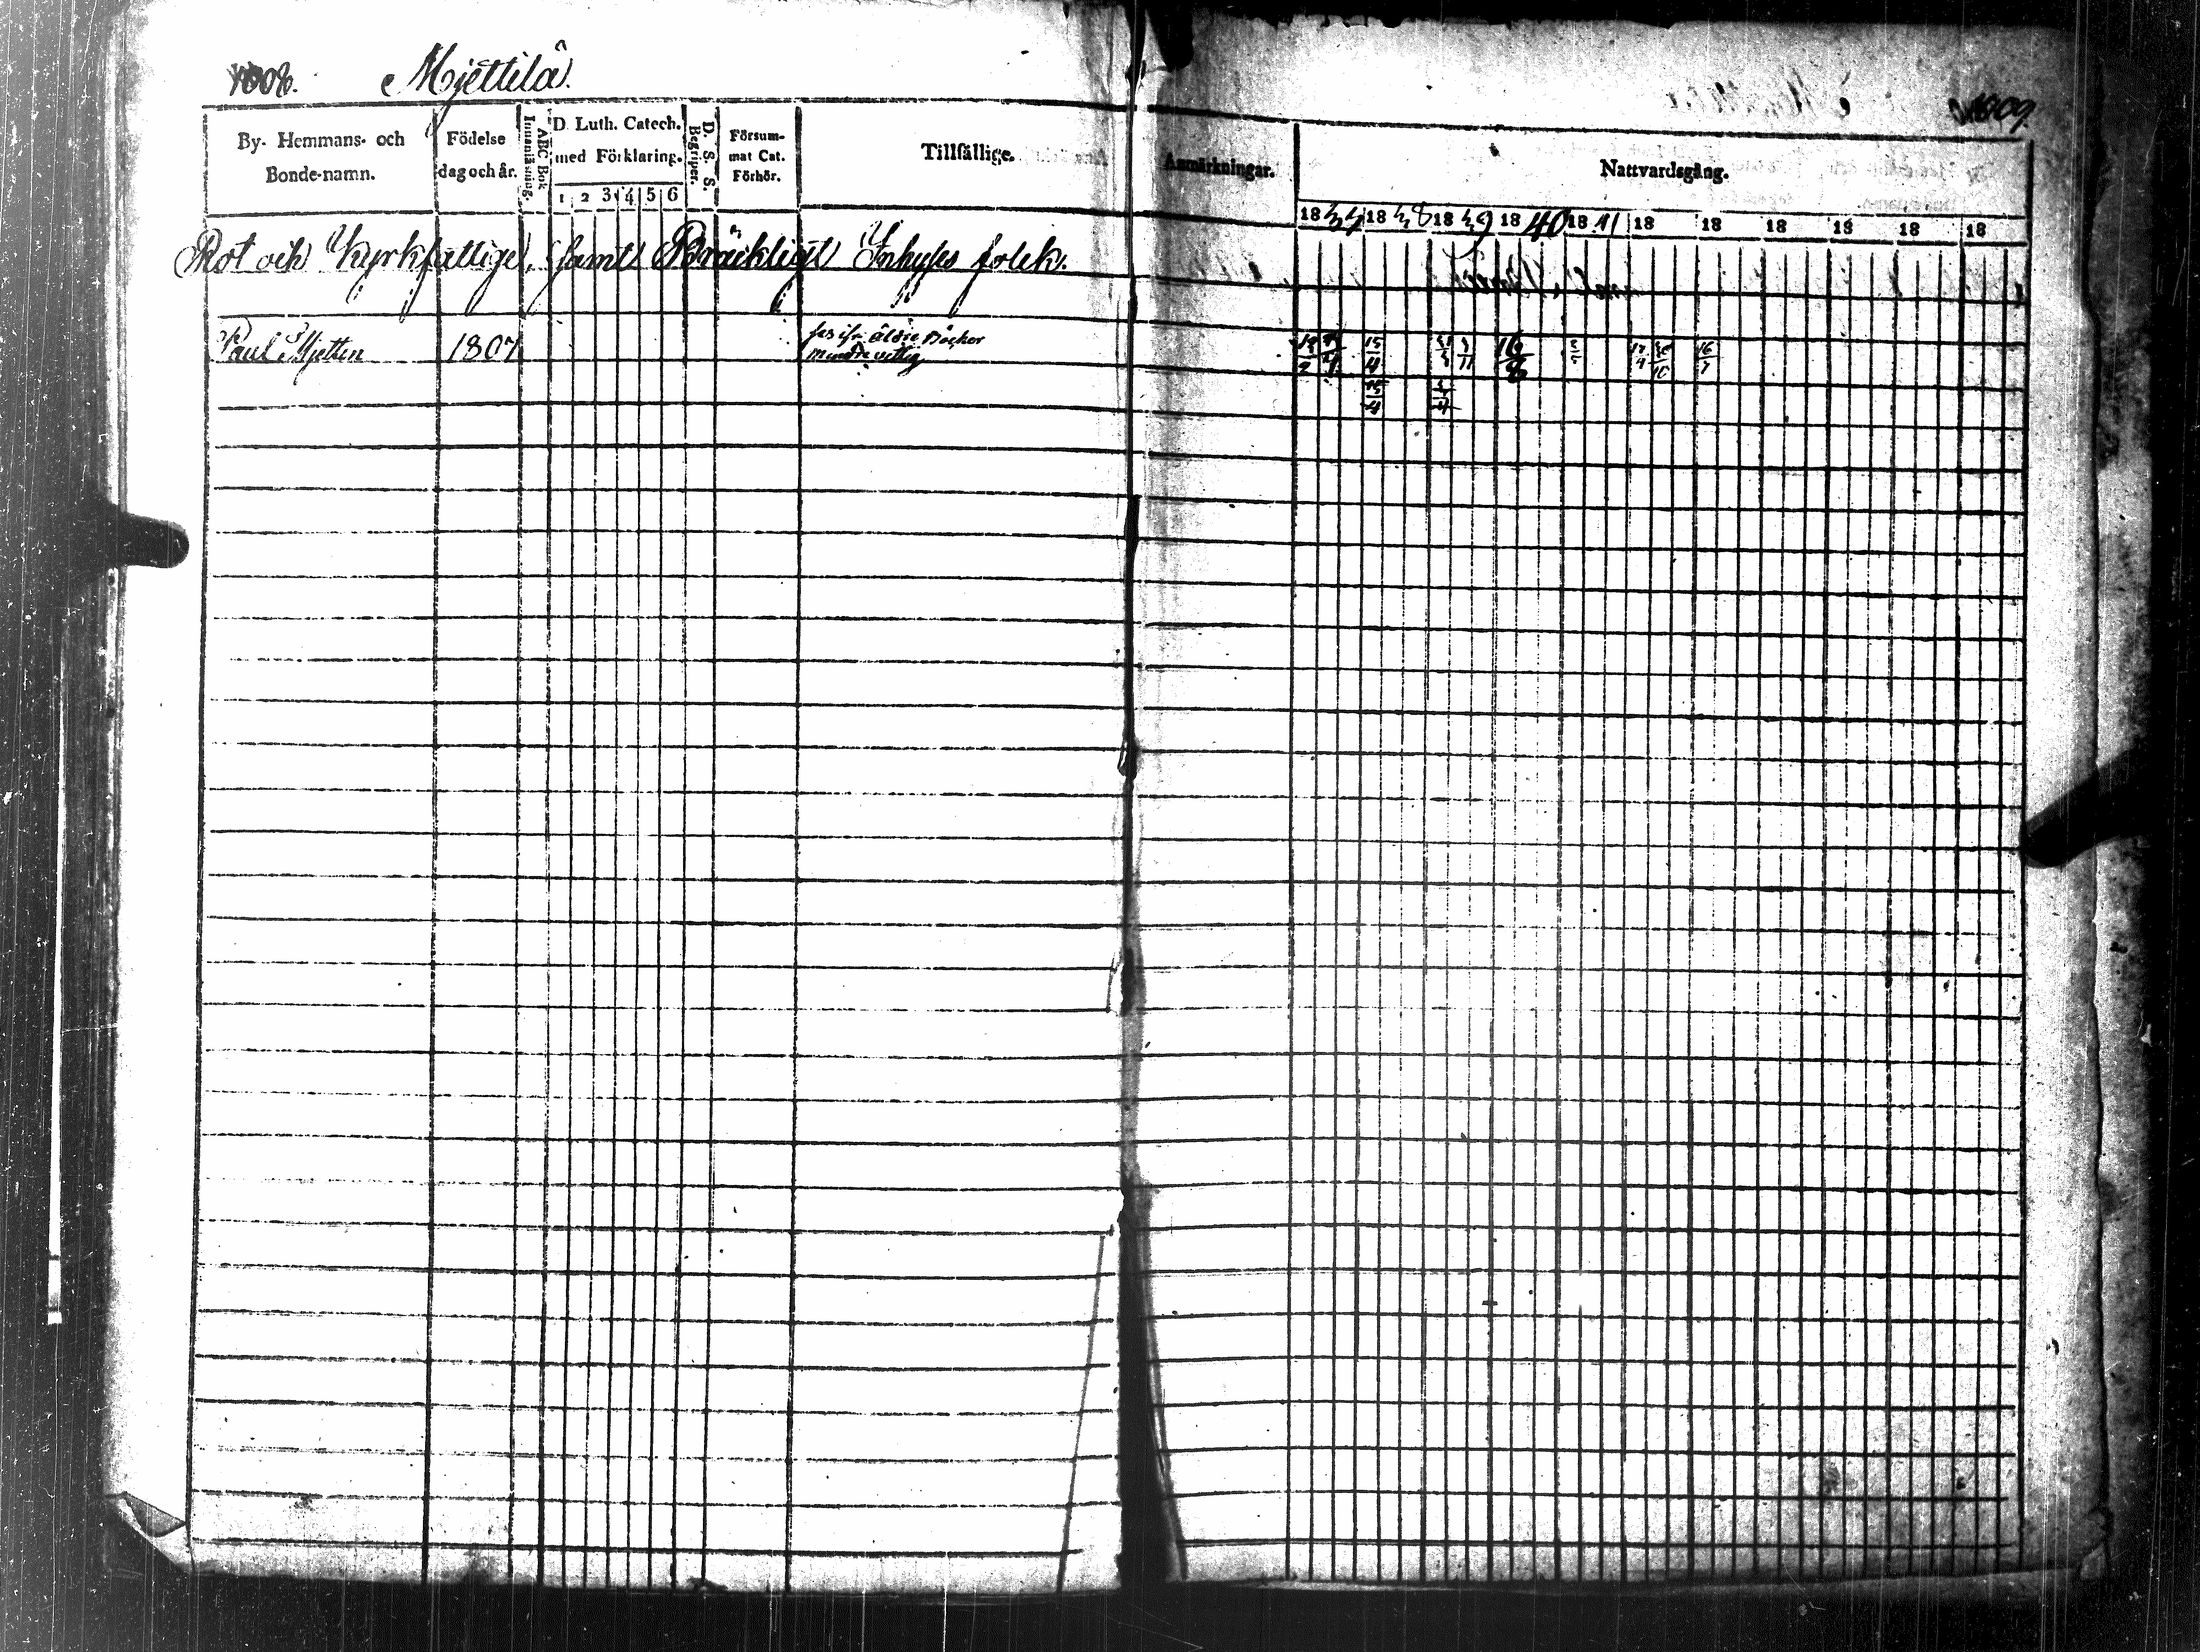 1008. Mjettilä
1009.
By- Hemmans- och Bonde-namn.
Födelse dag och år.
ABC Bok Innanläsning.
D. Luth. Catech. med Förklaring.
1 2 3 4 5 6
D. S. S. Begriper.
Försummat Cat. Förhör.
Tillfällige.
Anmärkningar.
Nattvardsgång.
18 37 18 38 18 39 18 40 18 41 18 18 18 18 18 18
Rot och Kyrkfattige, samt Bräckligit Inhyses folck.
Paul Mjettin 1807
äldre Böcker
mindre vettig